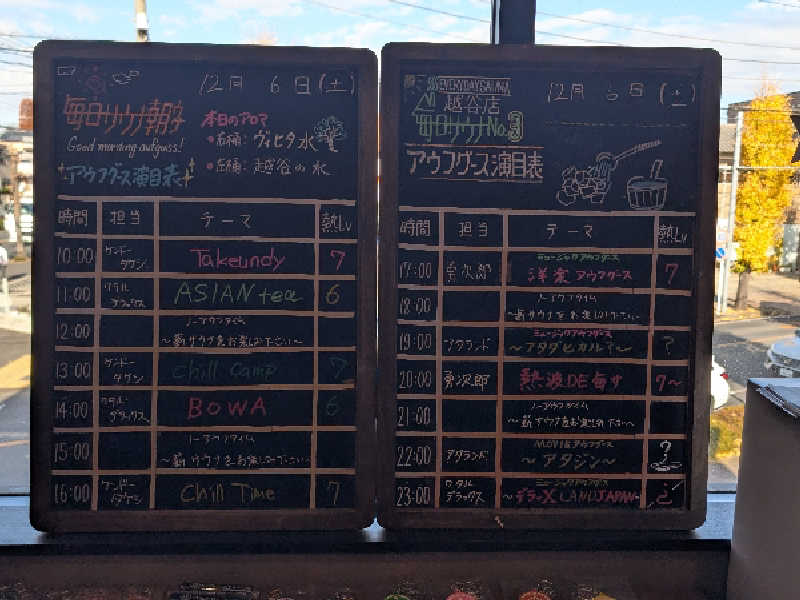 12月 6日(土)
毎日サウナ朝好
Good morning aufguss!
アウフグース演目表
本日のアロマ
・右桶:ヴィヒタ水
・左桶:越谷の水
時間 担当 テーマ 熱Lv
10:00 ケンドーダウン Takeundy 7
11:00 ワタル デラックス ASIAN tea 6
12:00 ノーアウフタイム
~薪サウナをお楽しみ下さい~
13:00 ケンドーダウン Chill Camp 7
14:00 ワタル デラックス BOWA 6
15:00 ノーアウフタイム
~薪サウナをお楽しみ下さい~
16:00 ケンドーダウン Chill Time 7
EVERYDAYSAUNA
越谷店
毎日サウナNo.3
アウフグース演目表
12月 6日(土)
時間 担当 テーマ 熱Lv
17:00 ミュージックアウフグース
洋楽アウフグース 7
18:00 ノーアウフタイム
~薪サウナをお楽しみ下さい~
19:00 アタランド ミュージックアウフグース
~アタダヒカル~ ?
20:00 熱波DE毎サ 7~
21:00 ノーアウフタイム
~薪サウナをお楽しみ下さい~
22:00 アタランド MOVIEアウフグース
~アタジン~ ?
23:00 ワタル デラックス ミュージックアウフグース
~デラックスLANDJAPAN~